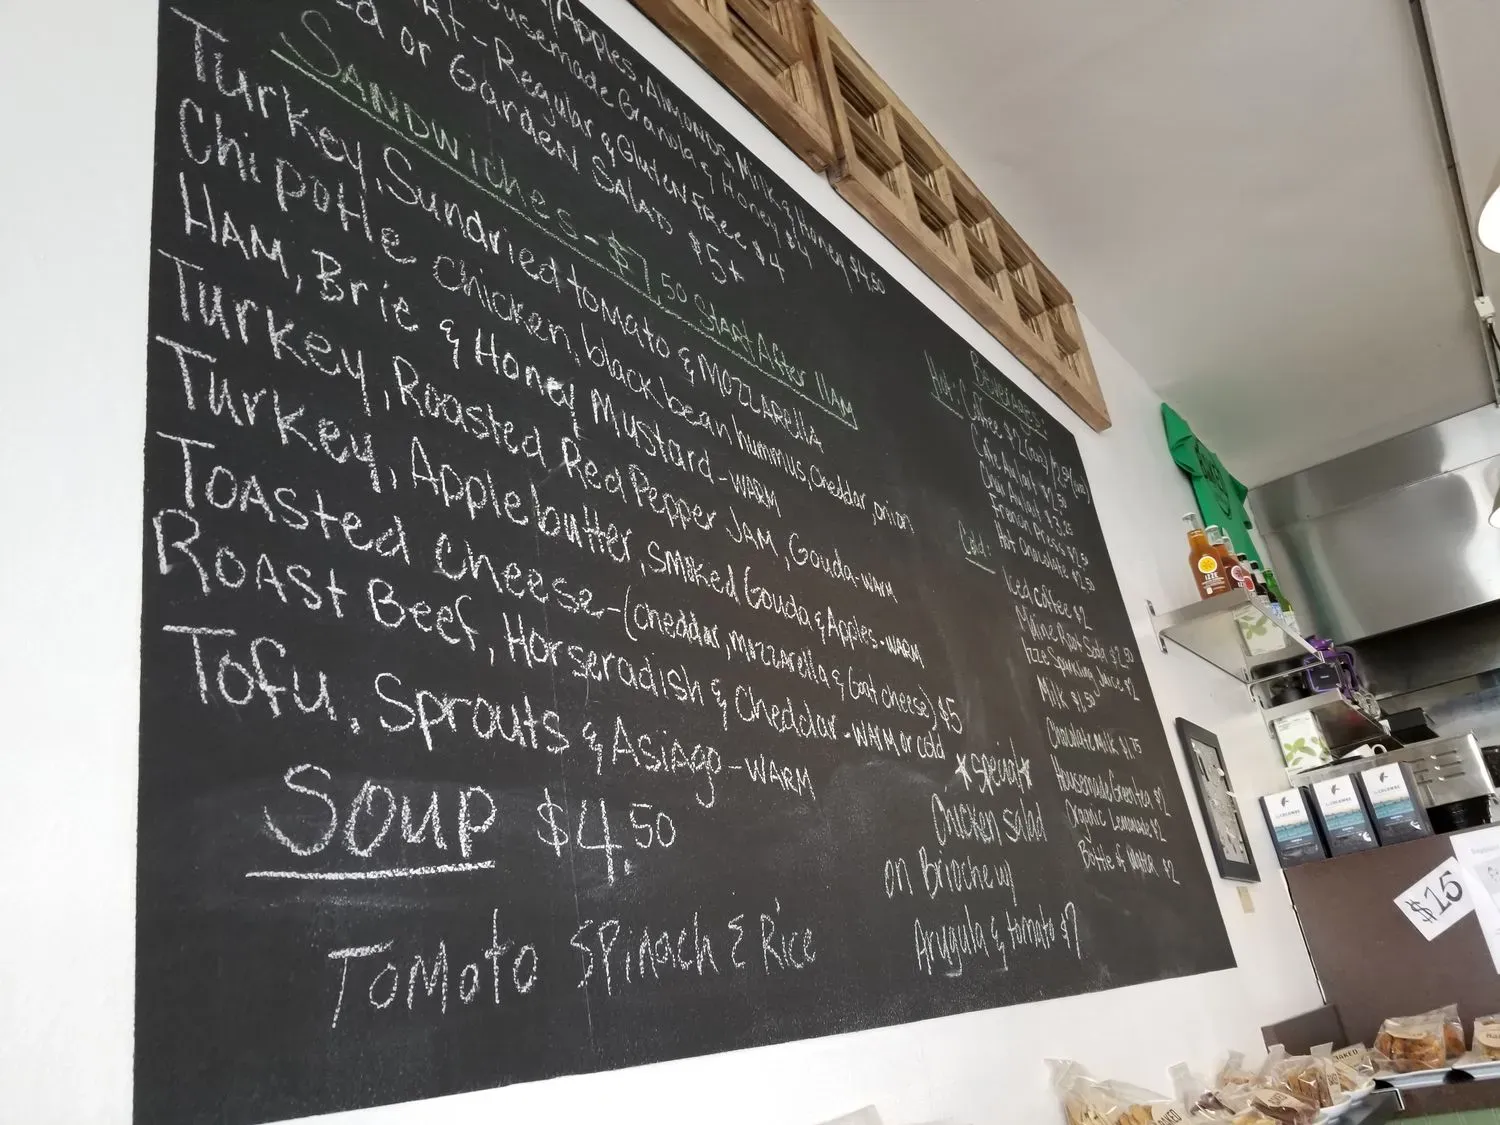 Apples, Almonds, Milk & Honey $4.50
Housemade Granola & Honey $4
Regular & Gluten Free $4
or Garden Salad $5
Sandwiches - $7.50 Start After 11AM
Turkey, Sundried tomato & Mozzarella
Chipotle chicken, black bean hummus, cheddar, onion
Ham, Brie & Honey Mustard - WARM
Turkey, Roasted Red Pepper Jam, Gouda - WARM
Turkey, Applebutter, smoked Gouda & Apples - WARM
Toasted cheese - (cheddar, mozzarella & Goat cheese) $5
Roast Beef, Horseradish & Cheddar - WARM or cold
Tofu, Sprouts & Asiago - WARM
Soup $4.50
Tomato Spinach & Rice
*Special*
Chicken salad
on Brioche w/
Arugula & tomato $7
Beverages
Hot:
Coffee $2
Cafe Au Lait $2.50
Chai Au Lait $3.25
French Press $2.50
Hot Chocolate $2.50
Cold:
Iced coffee $2
Maine Root Soda $2.50
Izze Sparkling Juice $2
Milk $1.50
Chocolate Milk $1.75
Housemade Green tea $2
Organic Lemonade $2
Bottle of Water $2
IZZE
LA COLOMBE
$15
BAKED